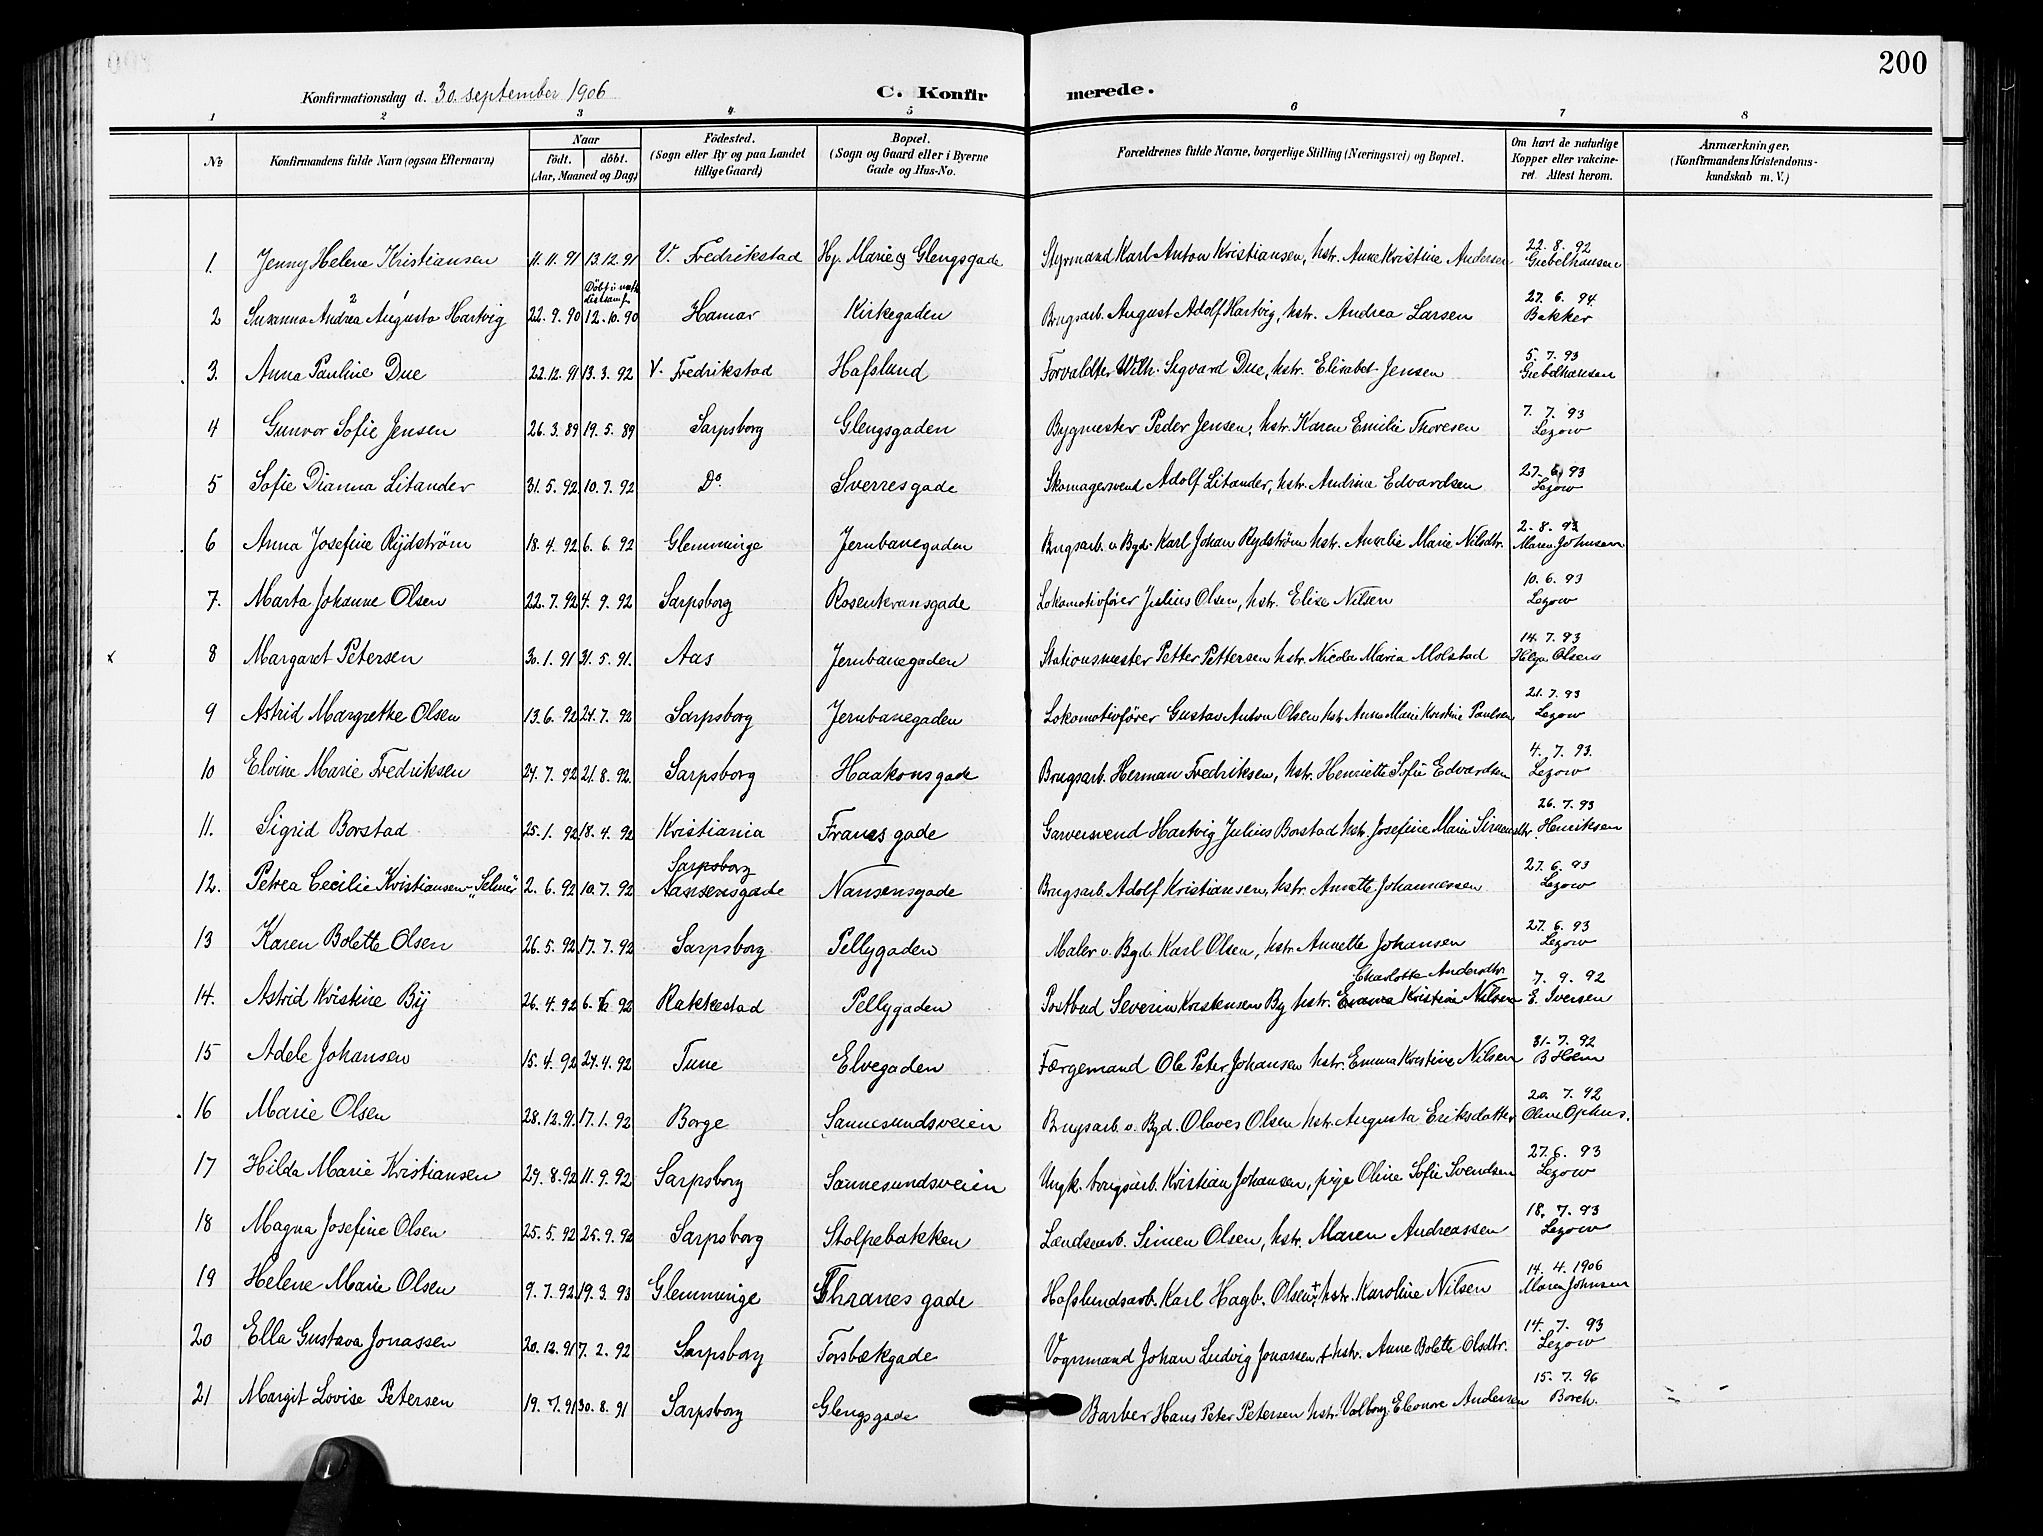 200
Konfirmationsdag d. 30. september 1906
C. Konfirmerede.
1 2 3 4 5 6 7 8
No
Konfirmandens fulde Navn (ogsaa Efternavn)
Naar
født. døbt.
(Aar, Maaned og Dag)
Födested.
(Sogn eller By og paa Landet
tillige Gaard)
Bopæl.
(Sogn og Gaard eller i Byerne
Gade og Hus-No.
Forældrenes fulde Navne, borgerlige Stilling (Næringsvei) og Bopæl.
Om havt de naturlige
Kopper eller vakcine-
ret. Attest herom.
Anmærkninger.
(Konfirmandens Kristendoms-
kundskab m. V.)
1. Jenny Helene Kristiansen 11.11.91 13.12.91 V. Fredrikstad Hj. Marie og Glengsgade Styrmand Karl Anton Kristiansen, hstr. Anne Kristine Andersen 22.8.92 Giebelhausen
2 Susanna Andrea Augusta Hartvig 22.9.90 12.10.90 Hamar Kirkegaden Brugsarb. August Adolf Hartvig, hstr. Andrea Larsen 27.6.94 Bakker
3. Anna Pauline Due 22.12.91 13.3.92 V. Fredrikstad Hafslund Forvaldter Wilh. Sigvard Due, hstr. Elisabet Jensen 5.7.93 Giebelhausen
4 Gunvor Sofie Jensen 26.3.89 19.5.89 Sarpsborg Glengsgaden Bygmester Peder Jensen, hstr. Karen Emilie Thoresen 7.7.93 Lezow
5 Sofie Dianna Litander 31.5.92 10.7.92 Do Sverresgade Skomagersvend Adolf Litander, hstr. Andrine Edvardsen 27.6.93 Lezow
6 Anna Josefine Rydström 18.4.92 6.6.92 Glemminge Jernbanegaden Brugsarb. v. Bgd. Karl Johan Rydström hstr. Amalie Marie Nilsdtr. 2.8.92 Maren Johnsen
7. Marta Johanne Olsen 22.7.92 4.9.92 Sarpsborg Rosenkransgade Lokomotivfører Julius Olsen, hstr. Elise Nilsen 10.6.93 Lezow
x 8 Margaret Petersen 30.1.91 31.5.91. Aas Jernbanegaden Stationsmester Petter Pettersen hstr. Nicola Maria Molstad 14.7.93 Helga Olsen
9 Astrid Margrethe Olsen 13.6.92 24.7.92 Sarpsborg Jernbanegaden Lokomotivfører Gustav Anton Olsen hstr. Anna Marie Kristine Paulsen 21.7.93 Lezow
10 Elvine Marie Fredriksen 24.7.92 21.8.92. Sarpsborg Haakonsgade Brugsarb. Herman Fredriksen, hstr. Henriette Sofie Edvardsen 4.7.93. Lezow
11. Sigrid Borstad 25.1.92 18.4.92 Kristiania Franes gade Garversvend Hartvig Julius Borstad hstr. Josefine Marie Simensdtr. 26.7.93 Henriksen
12. Petrea Cecilie Kristiansen 2.6.92 10.7.92 Sarpsborg Nansensgade Brugsarb. Adolf Kristiansen, hstr. Annette Johannessen 27.6.93 Lezow
13 Karen Bolette Olsen 26.5.92 17.7.92 Sarpsborg Pellygaden Maler v. Bgd. Karl Olsen, hstr. Annette Johansen 27.6.93 Lezow
Charlotte Andersdtr.
14. Astrid Kristine By 26.4.92 6.6.92 Rakkestad Pellygaden Postbud Severin Kristensen By hstr. Emma Kristine Nilsen 7.9.92 E. Iversen
15 Adele Johansen 15.4.92 24.4.92 Tune Elvegaden Færgemand Ole Peter Johansen hstr. Emma Kristine Nilsen 31.7.92 B Holem
16 Marie Olsen 28.12.91 17.1.92 Borge Sannesundsveien Brugsarb. v. Bgd. Olaves Olsen hstr. Augusta Eriksdatter 20.7.92 Oline Ophus.
17 Hilda Marie Kristiansen 29.8.92 11.9.92 Sarpsborg Sannesundsveien Ungk. brugsarb. Kristian Johansen, pige Oline Sofie Svendsen 27.6.93 Lezow
18 Magna Josefine Olsen 25.5.92 25.9.92 Sarpsborg Stolpebakken Lændsearb. Simen Olsen, hstr. Maren Andreassen 18.7.93 Lezow
19 Helene Marie Olsen 9.7.92 19.3.93 Glemminge Thranes gade Hafslundsarb. Karl Hagb. Olsen +, hstr. Karoline Nilsen 14.4.1906 Maren Johnsen
20 Ella Gustava Jonassen 20.12.91 7.2.92 Sarpsborg Forsbækgade Vognmand Johan Ludvig Jonassen, + hstr. Anne Bolette Olsdtr. 14.7.93 Lezow
21 Margit Lovise Petersen 19.7.91 30.8.91 Sarpsborg Glengsgade Barber Hans Peter Petersen hstr. Valborg Eleonore Andersen 15.7.96 Borch.